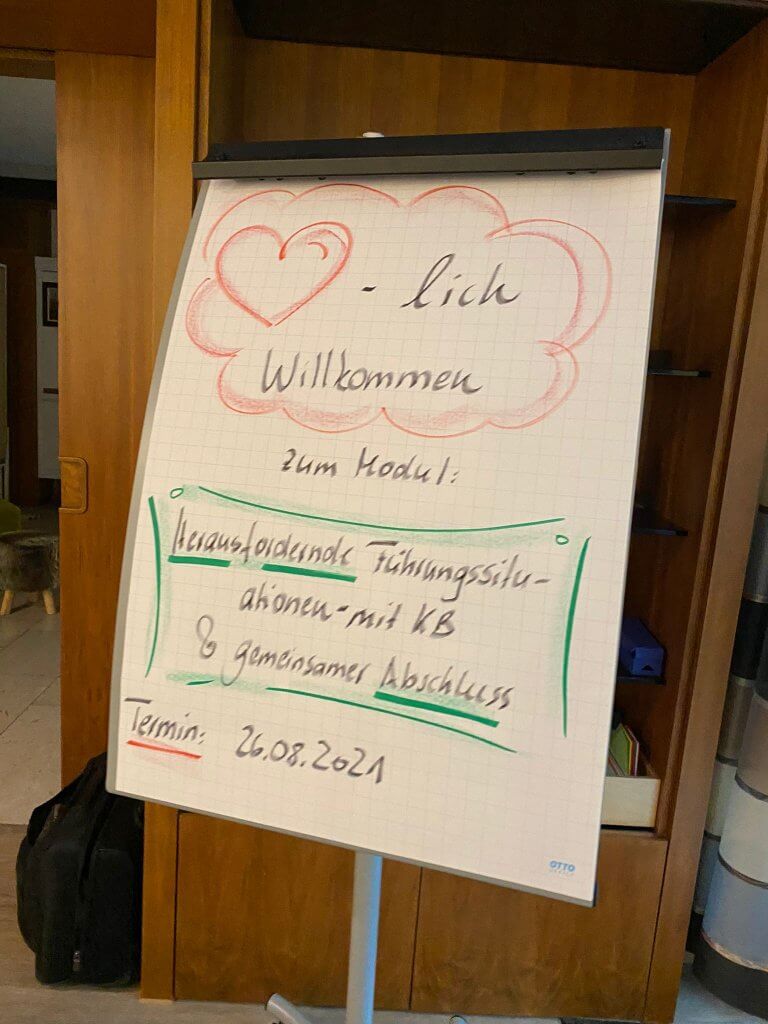 - lich
Willkommen
zum Modul:
Herausfordernde Führungssitu-
ationen-mit KB
& gemeinsamer Abschluss
Termin: 26.08.2021
OTTO